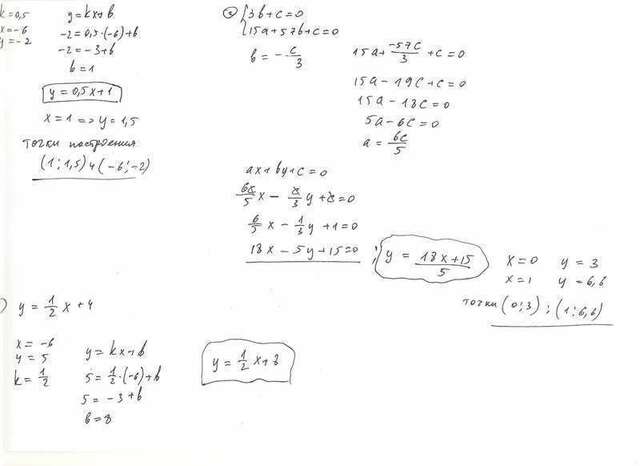 k=0,5
x=-6
y=-2
y=kx+b
-2=0,5·(-6)+b
-2=-3+b
b=1
y=0,5x+1
x=1 => y=1,5
точки построения
(1;1,5) и (-6;-2)
{3b+c=0
15a+57b+c=0
b=-c/3
15a+-57c/3+c=0
15a-19c+c=0
15a-18c=0
5a-6c=0
a=6c/5
ax+by+c=0
6c/5x-c/3y+c=0
6/5x-1/3y+1=0
18x-5y+15=0; y=18x+15/5
x=0 y=3
x=1 y=6,6
точки (0;3);(1;6,6)
) y=1/2x+4
x=-6
y=5
k=1/2
y=kx+b
5=1/2·(-6)+b
5=-3+b
b=8
y=1/2x+8